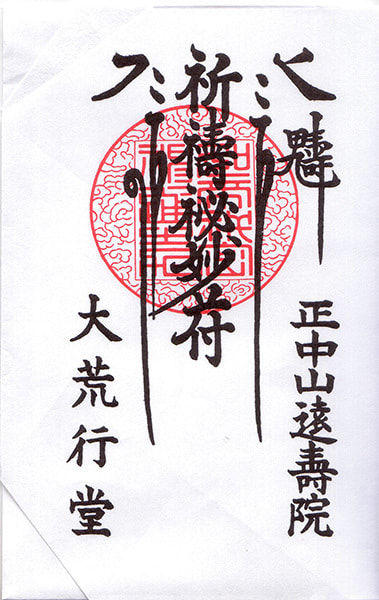 正中山遠壽院
祈禱秘妙符
大荒行堂